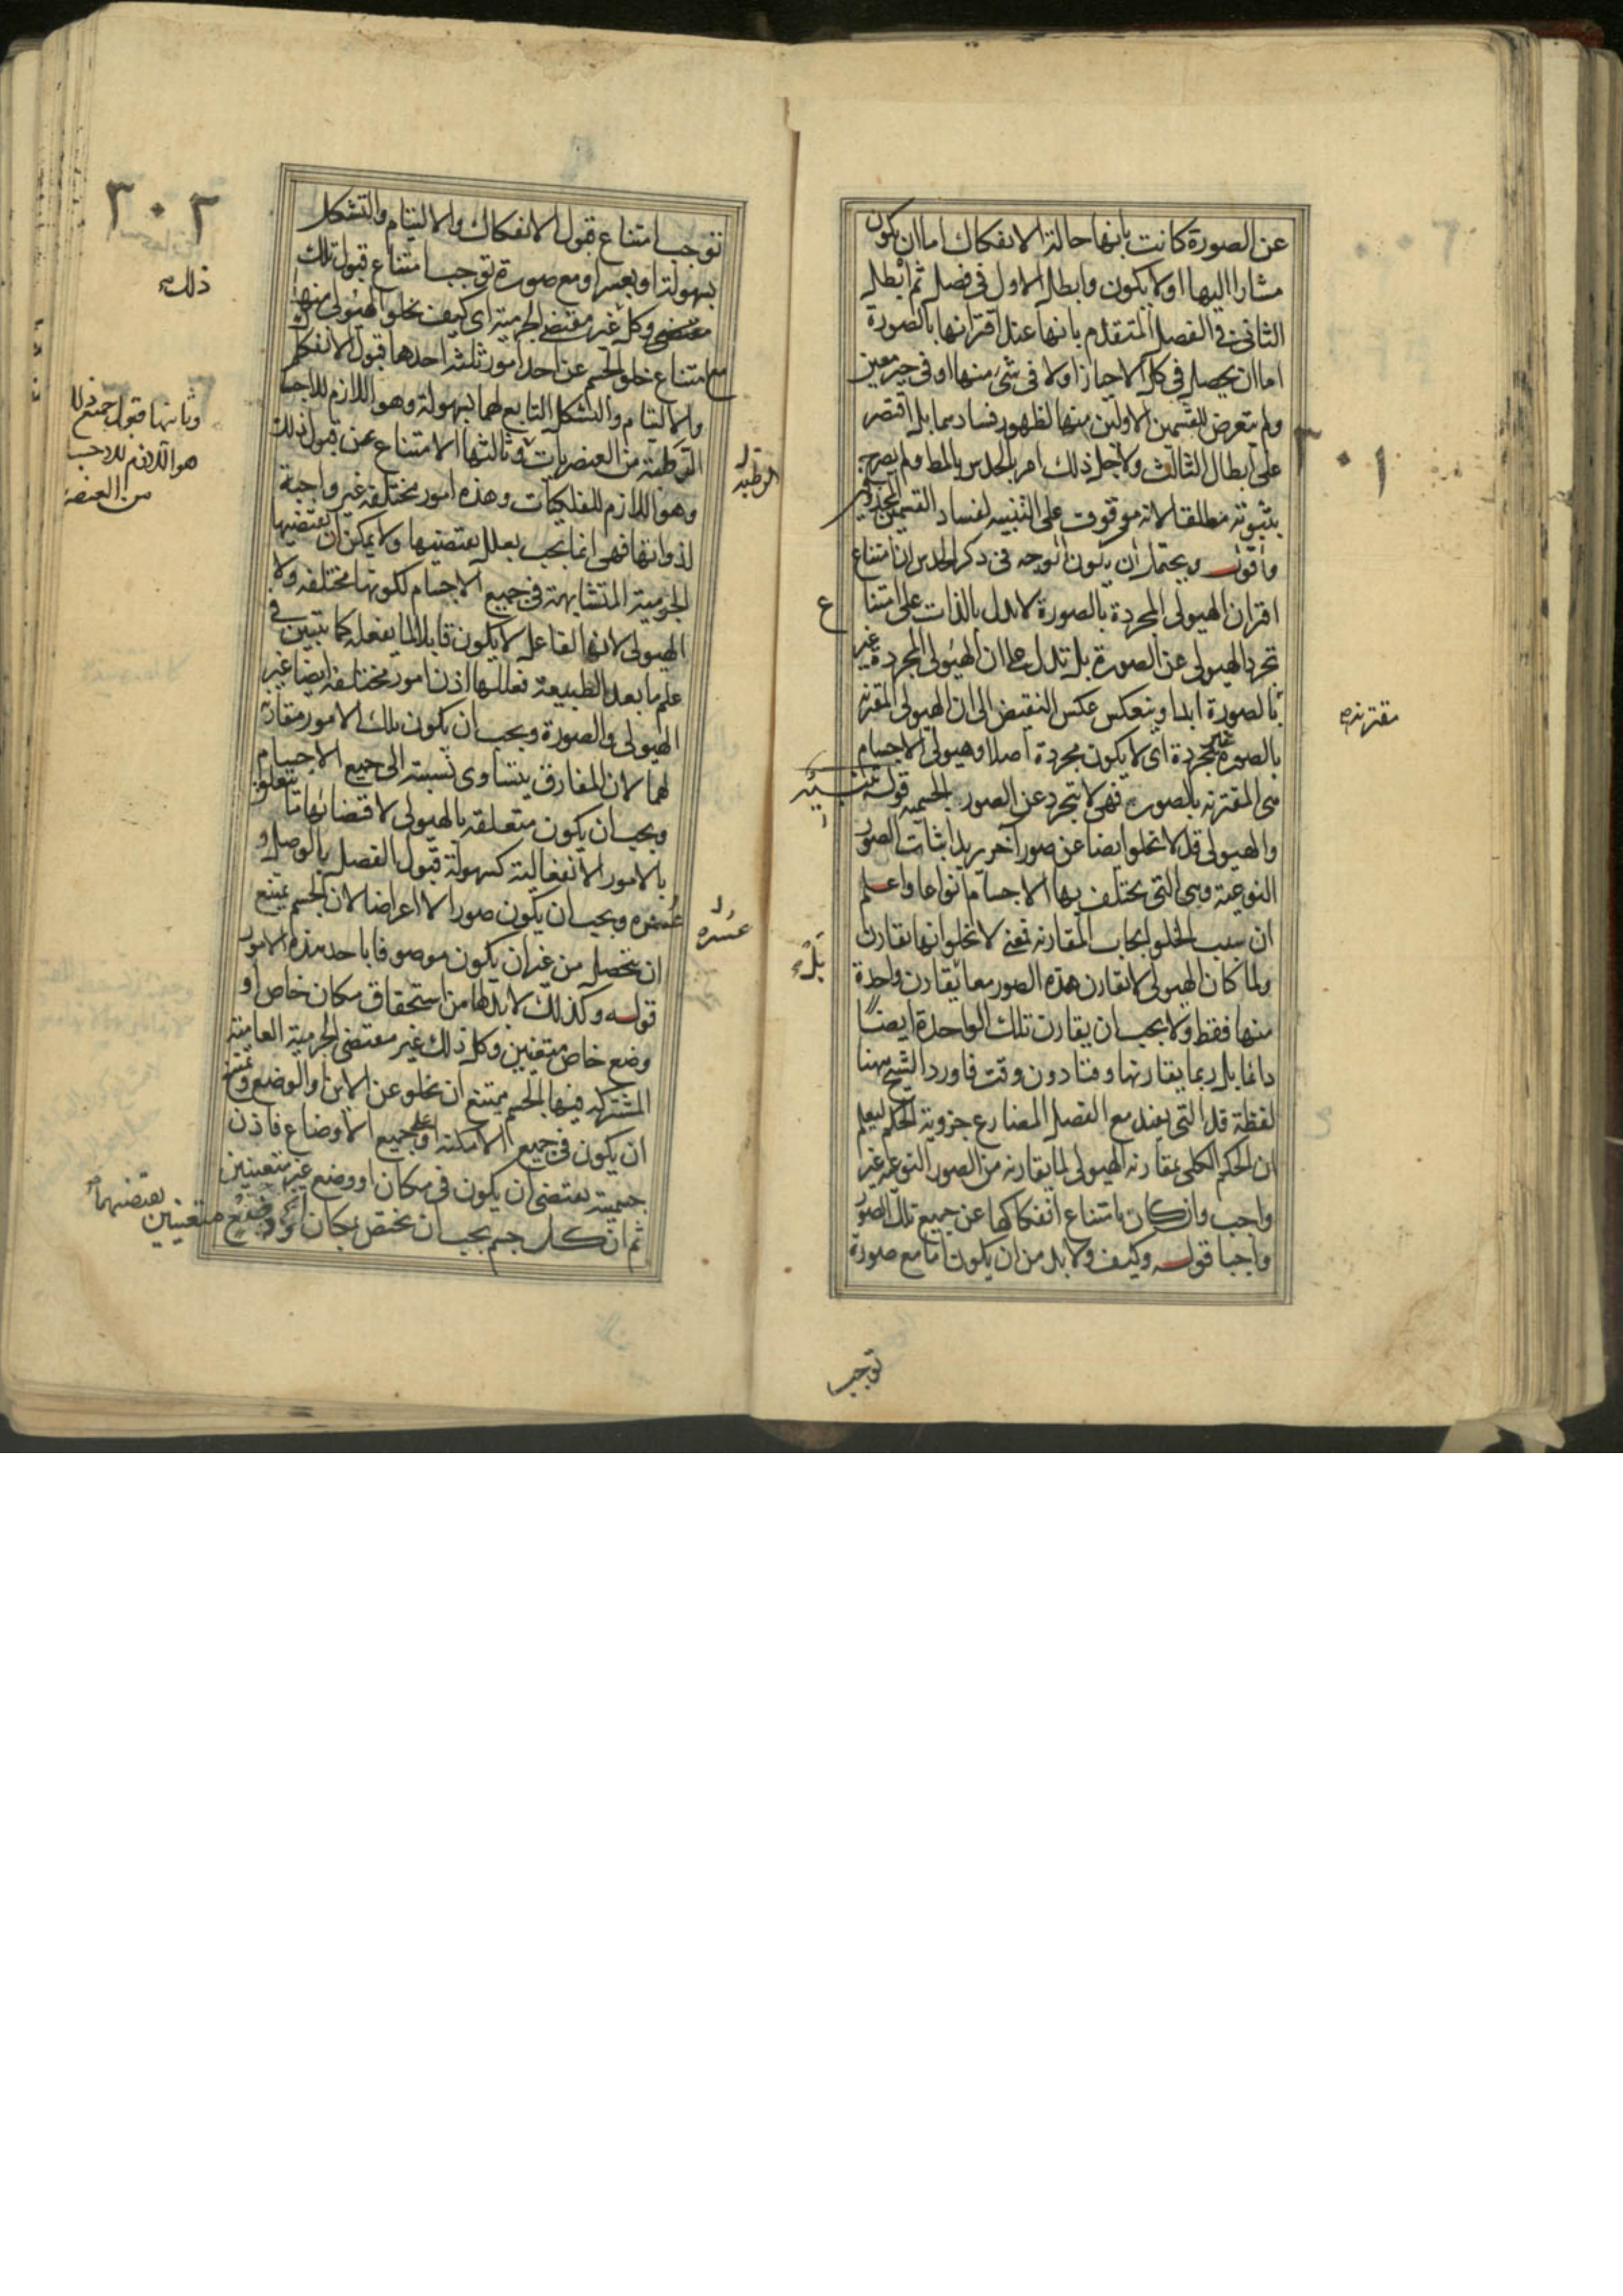 عن الصورة كانت بانها حالة الانفكاك اما ان يكون
مشارا اليها او لا يكون وابطل الاول فى فصل ثم ابطل
الثانى فى الفصل المتقدم بانها عند اقترانها بالصورة
اما ان يحصل فى كل الاحياز او لا فى شئ منها او فى حيز معين
ولم يتعرض للقسمين الاولين منها لظهور فسادهما بل اقتصر
على ابطال الثالث ولاجل ذلك امر بالحدس بالمط ولم يصرح
بثبوته مطلقا لانه موقوف على التنبيه لفساد القسمين المحذوفين
واقول ويحتمل ان يكون الوجه فى ذكر الحدس ان امتناع
اقتران الهيولى المجردة بالصورة لا يدل بالذات على امتنا ع
تجرد الهيولى عن الصورة بل تدل على ان الهيولى المجردة غير
بالصورة ابدا وينعكس عكس النقيض الى ان الهيولى المقترنة
مقترنه
بالصورة غير مجردة اى لا يكون مجردة اصلا وهيولى الاجسام
هى المقترنه بالصورة فهى لا تتجرد عن الصور الجسميه قوله تنبيه
والهيولى قد لا تخلو ايضا عن صور اخر يريد اثبات الصور
النوعية وهى التى يختلف بها الاجسام انواعا واعلم
ان سلب الخلو ايجاب المقارنه فمعنى لا تخلو انها تقارن
ولما كان الهيولى لا تقارن هذه الصور معا بل يقارن واحدة
منها فقط ولا يجب ان يقارن تلك الواحدة ايضا
دائما بل ربما يقارنها وقتا دون وقت فاورد الشيخ ههنا
لفظة قد التى يفيد مع الفعل المضارع جزوية الحكم ليعلم
ان الحكم الكلى بمقارنه الهيولى لما يقارنه من الصور النوعيه غير
واجب وان كان بامتناع انفكاكها عن جميع تلك الصور
واجبا قوله وكيف ولا بد من ان يكون اما مع صورة
توجب
٣٠١
٣٠٢
توجب امتناع قبول الانفكاك والالتيام والتشكل
بسهولة او بعسر او مع صورة توجب امتناع قبول تلك
ذلك
مقتضى وكل غير مقتضى الجرمية اى كيف تخلو الهيولى منها
مع امتناع خلو الجسم عن احد امور ثلثة احدها قبول الانفكاك
والالتيام والتشكل التابع لهما بسهولة وهو اللازم للاجسا
وثانيها قبول جميع ذلك
هو اللازم للاجسا
من العنصر
الرطبة من العنصريات وثالثها الامتناع عن قبول ذلك
الرطبه
وهو اللازم للفلكيات وهذه امور مختلفة غير واجبة
لذواتها فهى انما يجب بعلل يقتضيها ولا يمكن ان يقتضيها
الجرمية المتشابهة فى جميع الاجسام لكونها مختلفه ولا
الهيولى لانها الفاعل لا يكون قابلا لما يفعله كما تبين فى
علم ما بعد الطبيعة فعللها اذن امور مختلفة ايضا غير
الهيولى والصورة ويجب ان يكون تلك الامور مقارنة
لهما لان المفارق يتساوى نسبته الى جميع الاجسام
ويجب ان يكون متعلقه بالهيولى لاقتضائها ما يتعلق
بالامور الانفعالية كسهولة قبول الفصل بالوصل و
عسره ويجب ان يكون صورا لا اعراضا لان الجسم يمتنع
عسره
ان يتحصل من غير ان يكون موصوفا باحد هذه الامور
قوله وكذلك لا بد لها من استحقاق مكان خاص او
وضع خاص متعينين وكل ذلك غير مقتضى الجرمية العامة
المشترك فيها الجسم يمتنع ان يخلو عن الاين او الوضع ويمتنع
ان يكون فى جميع الامكنة او على جميع الاوضاع فاذن
جسمية يقتضى ان يكون فى مكان او وضع غير متعينين
ثم ان كل جسم يجب ان يختص بمكان او وضع متعينين يقتضيهما